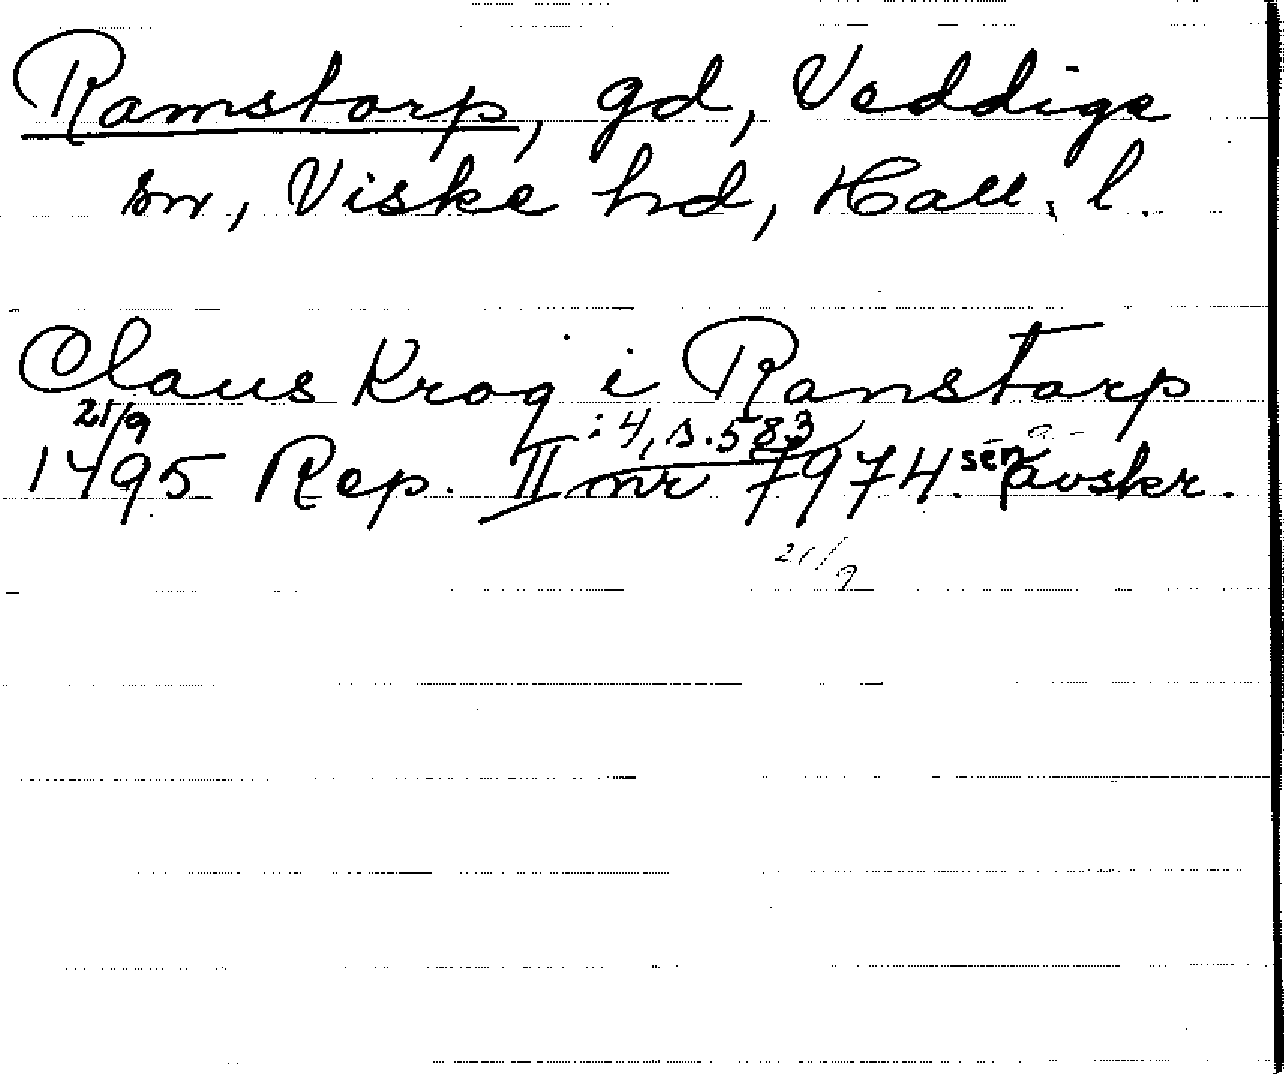 Ramstorp, gd, Veddige
sn, Viske hd, Hall. l.
Claus Krog i Ranstorp
25/9 :4, s. 583
1495 Rep. II nr 7974. sen avskr.
25/9